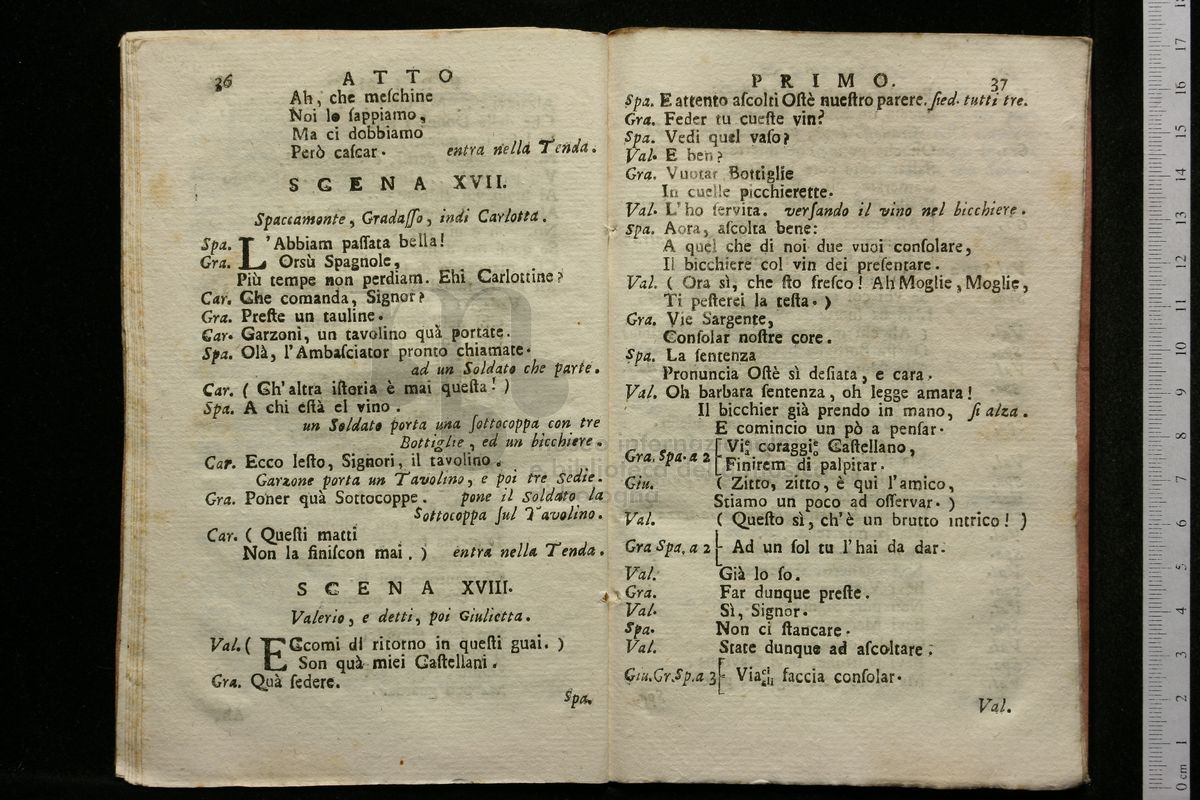 36 ATTO
Ah, che meſchine
Noi le ſappiamo,
Ma ci dobbiamo
Però caſcar. entra nella Tenda.
SCENA XVII.
Spaccamonte, Gradaſſo, indi Carlotta.
Spa. L'Abbiam paſſata bella!
Gra. Orsù Spagnole,
Più tempe non perdiam. Ehi Carlottine?
Car. Che comanda, Signor?
Gra. Preſte un tauline.
Car. Garzoni, un tavolino quà portate.
Spa. Olà, l'Ambaſciator pronto chiamate.
ad un Soldato che parte.
Car. ( Ch'altra iſtoria è mai queſta! )
Spa. A chi eſtà el vino.
un Soldato porta una ſottocoppa con tre
Bottiglie, ed un bicchiere.
Car. Ecco leſto, Signori, il tavolino.
Garzone porta un Tavolino, e poi tre Sedie.
Gra. Poner quà Sottocoppe. pone il Soldato la
Sottocoppa ſul Tavolino.
Car. ( Queſti matti
Non la finiſcon mai. ) entra nella Tenda.
SCENA XVIII.
Valerio, e detti, poi Giulietta.
Val. ( ECcomi di ritorno in queſti guai. )
Son quà miei Caſtellani.
Gra. Quà ſedere.
Spa.
PRIMO. 37
Spa. E attento aſcolti Oſtè nueſtro parere. ſied. tutti tre.
Gra. Feder tu cueſte vin?
Spa. Vedi quel vaſo?
Val. E ben?
Gra. Vuotar Bottiglie
In cuelle picchierette.
Val. L'ho ſervita. verſando il vino nel bicchiere.
Spa. Aora, aſcolta bene:
A quel che di noi due vuoi conſolare,
Il bicchiere col vin dei preſentare.
Val. ( Ora sì, che ſto freſco! Ah Moglie, Moglie,
Ti peſterei la teſta. )
Gra. Vie Sargente,
Conſolar noſtre core.
Spa. La ſentenza
Pronuncia Oſtè sì deſiata, e cara.
Val. Oh barbara ſentenza, oh legge amara!
Il bicchier già prendo in mano, ſi alza.
E comincio un pò a penſar.
Gra. Spa. a 2 [ Vie a coraggie o Caſtellano,
Finirem di palpitar.
Giu. ( Zitto, zitto, è qui l'amico,
Stiamo un poco ad oſſervar. )
Val. ( Queſto sì, ch'è un brutto intrico! )
Gra Spa. a 2 [- Ad un ſol tu l'hai da dar.
Val. Già lo ſo.
Gra. Far dunque preſte.
Val. Sì, Signor.
Spa. Non ci ſtancare.
Val. State dunque ad aſcoltare.
Giu. Gr. Sp. a 3 [- Via ci gli faccia conſolar.
Val.